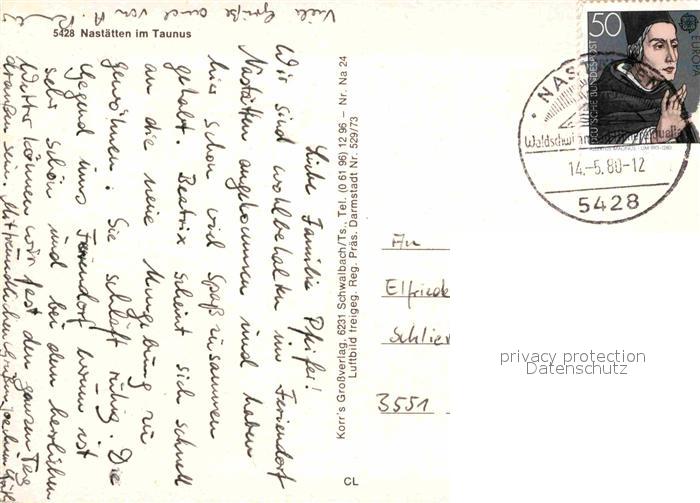 Viele Grüße auch von
5428 Nastätten im Taunus
Liebe Familie Pfeifer!
Wir sind wohlbehalten im Feriendorf
Nastätten angekommen und haben
hier schon viel Spaß zusammen
gehabt. Beatrix scheint sich schnell
an die neue Umgebung zu
gewöhnen. Sie schläft ruhig. Die
Gegend ums Feriendorf herum ist
sehr schön und bei dem herrlichen
Wetter können wir fast den ganzen Tag
draußen sein. Mit freundlichen Grüßen
Korr's Großverlag, 6231 Schwalbach/Ts., Tel. (0 61 96) 12 96 – Nr. Na 24
Luftbild freigeg. Reg. Präs. Darmstadt Nr. 529/73
CL
50
EUROPA
DEUTSCHE BUNDESPOST
14.-5.80-12
5428
An
Elfriede
Schlier
3551
privacy protection
Datenschutz